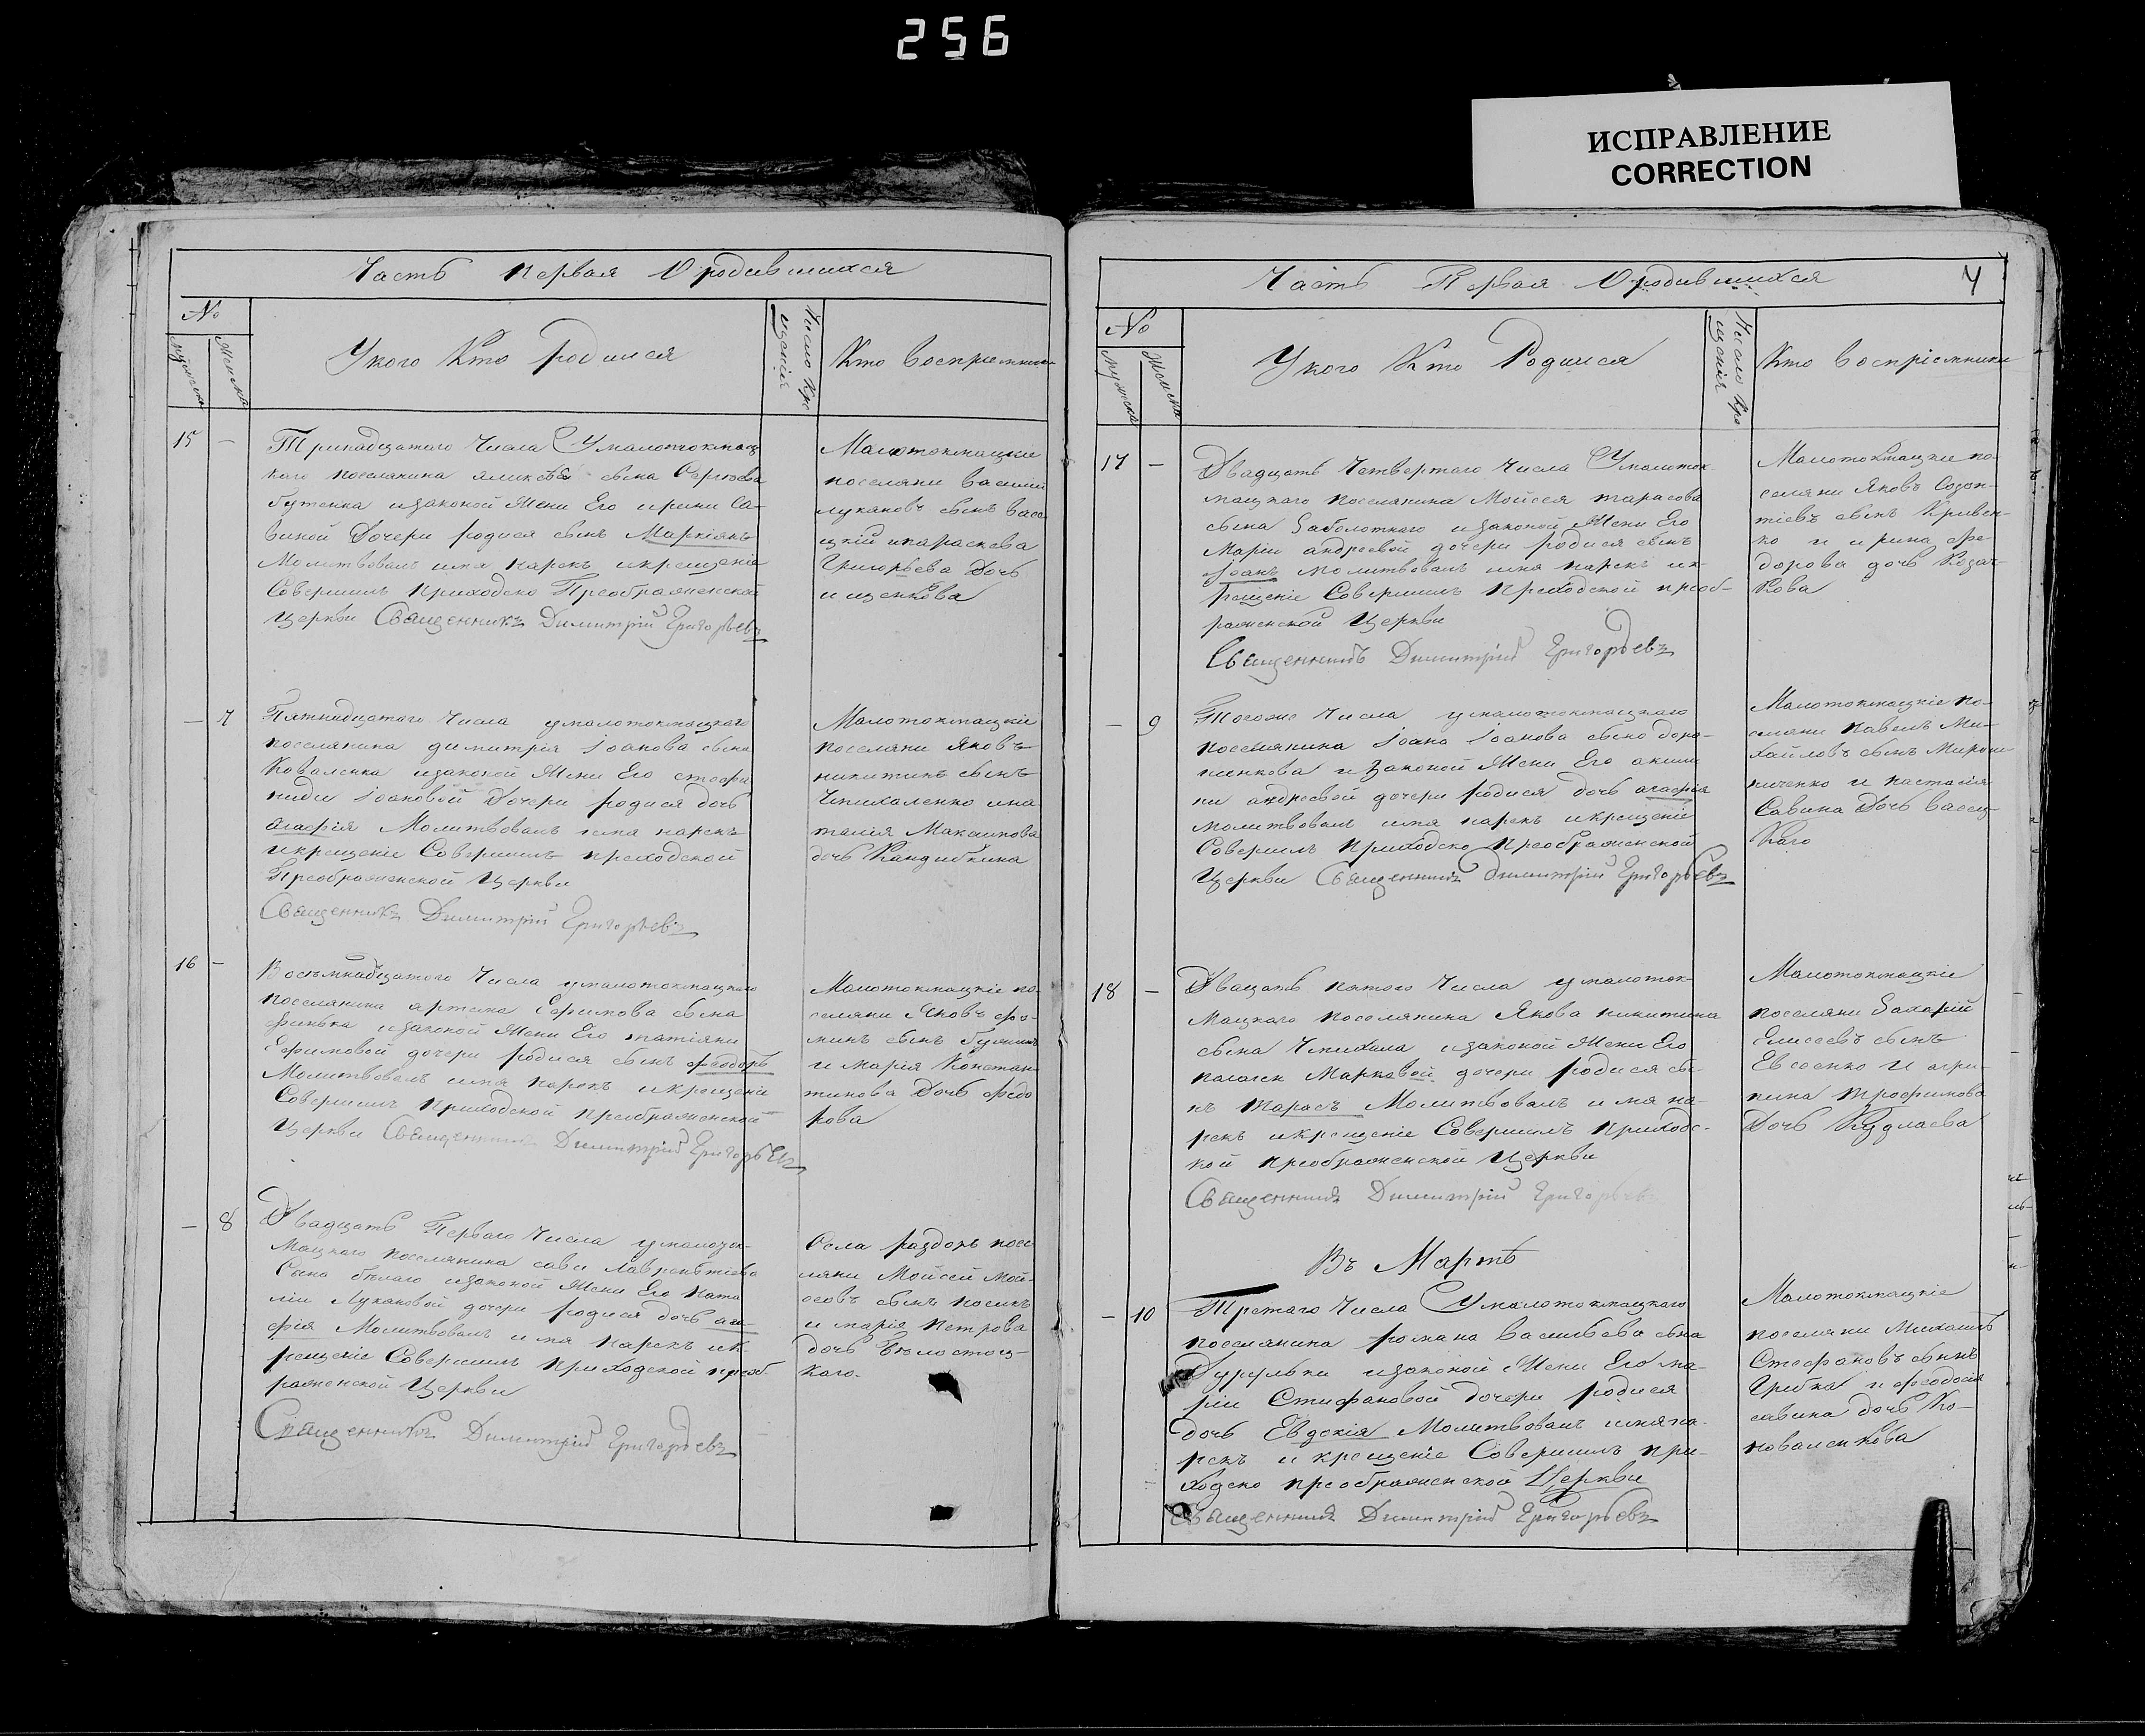 256
ИСПРАВЛЕНИЕ
CORRECTION
Часть первая О родившихся
№
Укого Кто родился
Число Кре
щенія
Кто Воспріемники
15 —
Тринадцатаго Числа Умалотокмац
каго поселянина сына Сергѣева
Бутенка изаконой Жени Его ирини Са-
виной Дочери родися сынъ Маркіянъ
Молитвовалъ имя нарекъ икрещеніе
Совершилъ Приходско Преображенской
Церкви Священникъ Димитрій Григорьевъ
Малотокмацкіе
поселяни Василій
лукяновъ сынъ Васе
цкій ипараскева
Григорьева Дочь
ищенкова
— 7
Пятнадцатаго Числа умалотокмацкаго
поселянина димитрія іоанова сына
Коваленка изаконой Жени Его стефа
ниди іоановой Дочери родися дочь
агафія Молитвовалъ имя нарекъ
икрещеніе Совершилъ приходской
Преображенской Церкви
Священникъ Димитрій Григорьевъ
Малотокмацкіе
поселяни Яковъ
никитинъ сынъ
Чмихаленко ина
талія Максимова
дочь Кандибкина
16 —
Восѣмнадцатаго Числа умалотокмацкаго
поселянина артема Ефимова сына
финька изаконой Жени Его татіяни
Ефимовой дочери родися сынъ феодоръ
Молитвовалъ имя нарекъ икрещеніе
Совершилъ Приходской преображенской
Церкви Священникъ Димитрій Григорьевъ
Малотокмацкіе по-
селяни Яковъ фо-
минъ сынъ
и марія Констан-
тинова Дочь федо
рова
— 8
Двадцать Перваго Числа умалоток-
мацкаго поселянина сави лаврентіева
Сына бѣлаго изаконой Жени Его ната
ліи Лукяновой дочери родися дочь ага
фія Молитвовалъ имя нарекъ ик
рещеніе Совершилъ Приходской преоб
раженской Церкви
Священникъ Димитрій Григорьевъ
Села раздоръ посе
ляни Мойсей Мой-
сеовъ сынъ носикъ
и марія петрова
дочь Бѣлостоц-
каго.
Часть Первая О родившихся 4
№
Укого Кто Родился
Число Кре
щенія
Кто Воспріемники
17 —
Двадцать Четвертаго Числа Умалоток
мацкаго поселянина Мойсея тарасова
сына Заболотнаго изаконой Жени Его
Маріи андреевой дочери родися сынъ
Іоанъ молитвовалъ имя нарекъ ик-
рещеніе Совершилъ Приходской преоб-
раженской Церкви
Священникъ Димитрій Григорьевъ
Малотокмацкіе по-
селяни Яковъ Созон-
тіевъ сынъ Кривен-
ко и ирина фе
дорова дочь Козач-
кова
— 9
Тогоже Числа умалотокмацкаго
поселянина іоана іоанова сына доро-
шенкова изаконой Жени Его акили
ни андреевой дочери родися дочь агафія
молитвовалъ имя нарекъ икрещеніе
Совершилъ Приходско Преображенской
Церкви Священникъ Димитрій Григорьевъ
Малотокмацкіе по-
селяни павелъ Ми-
хайловъ сынъ Мирош-
ниченко и настасія
Савина Дочь Васец-
Каго
18 —
Двацать пятого Числа умалоток-
мацкаго поселянина Якова никитина
сына Чмихала изаконой Жени Его
пелагеи Марковой дочери родися сы-
нъ Тарасъ Молитвовалъ имя на-
рекъ икрещеніе Совершилъ приходс-
кой преображенской Церкви
Священникъ Димитрій Григорьевъ
Малотокмацкіе
поселяни Захарій
Елисеевъ сынъ
Евсеенко и агри-
пина трофимова
Дочь Кудлаева
Въ Мартѣ
— 10
Третаго Числа Умалотокмацкаго
поселянина романа Васильева сына
изаконой Жени Его ма-
ріи Стифановой дочери родися
дочь Евдокія Молитвовалъ имя на-
рекъ и крещеніе Совершилъ при-
ходско преображенской Церкви
Священникъ Димитрій Григорьевъ
Малотокмацкіе
поселяни Михаилъ
Стефановъ сынъ
Грибка и феодосія
савина дочь Ко-
новаленкова